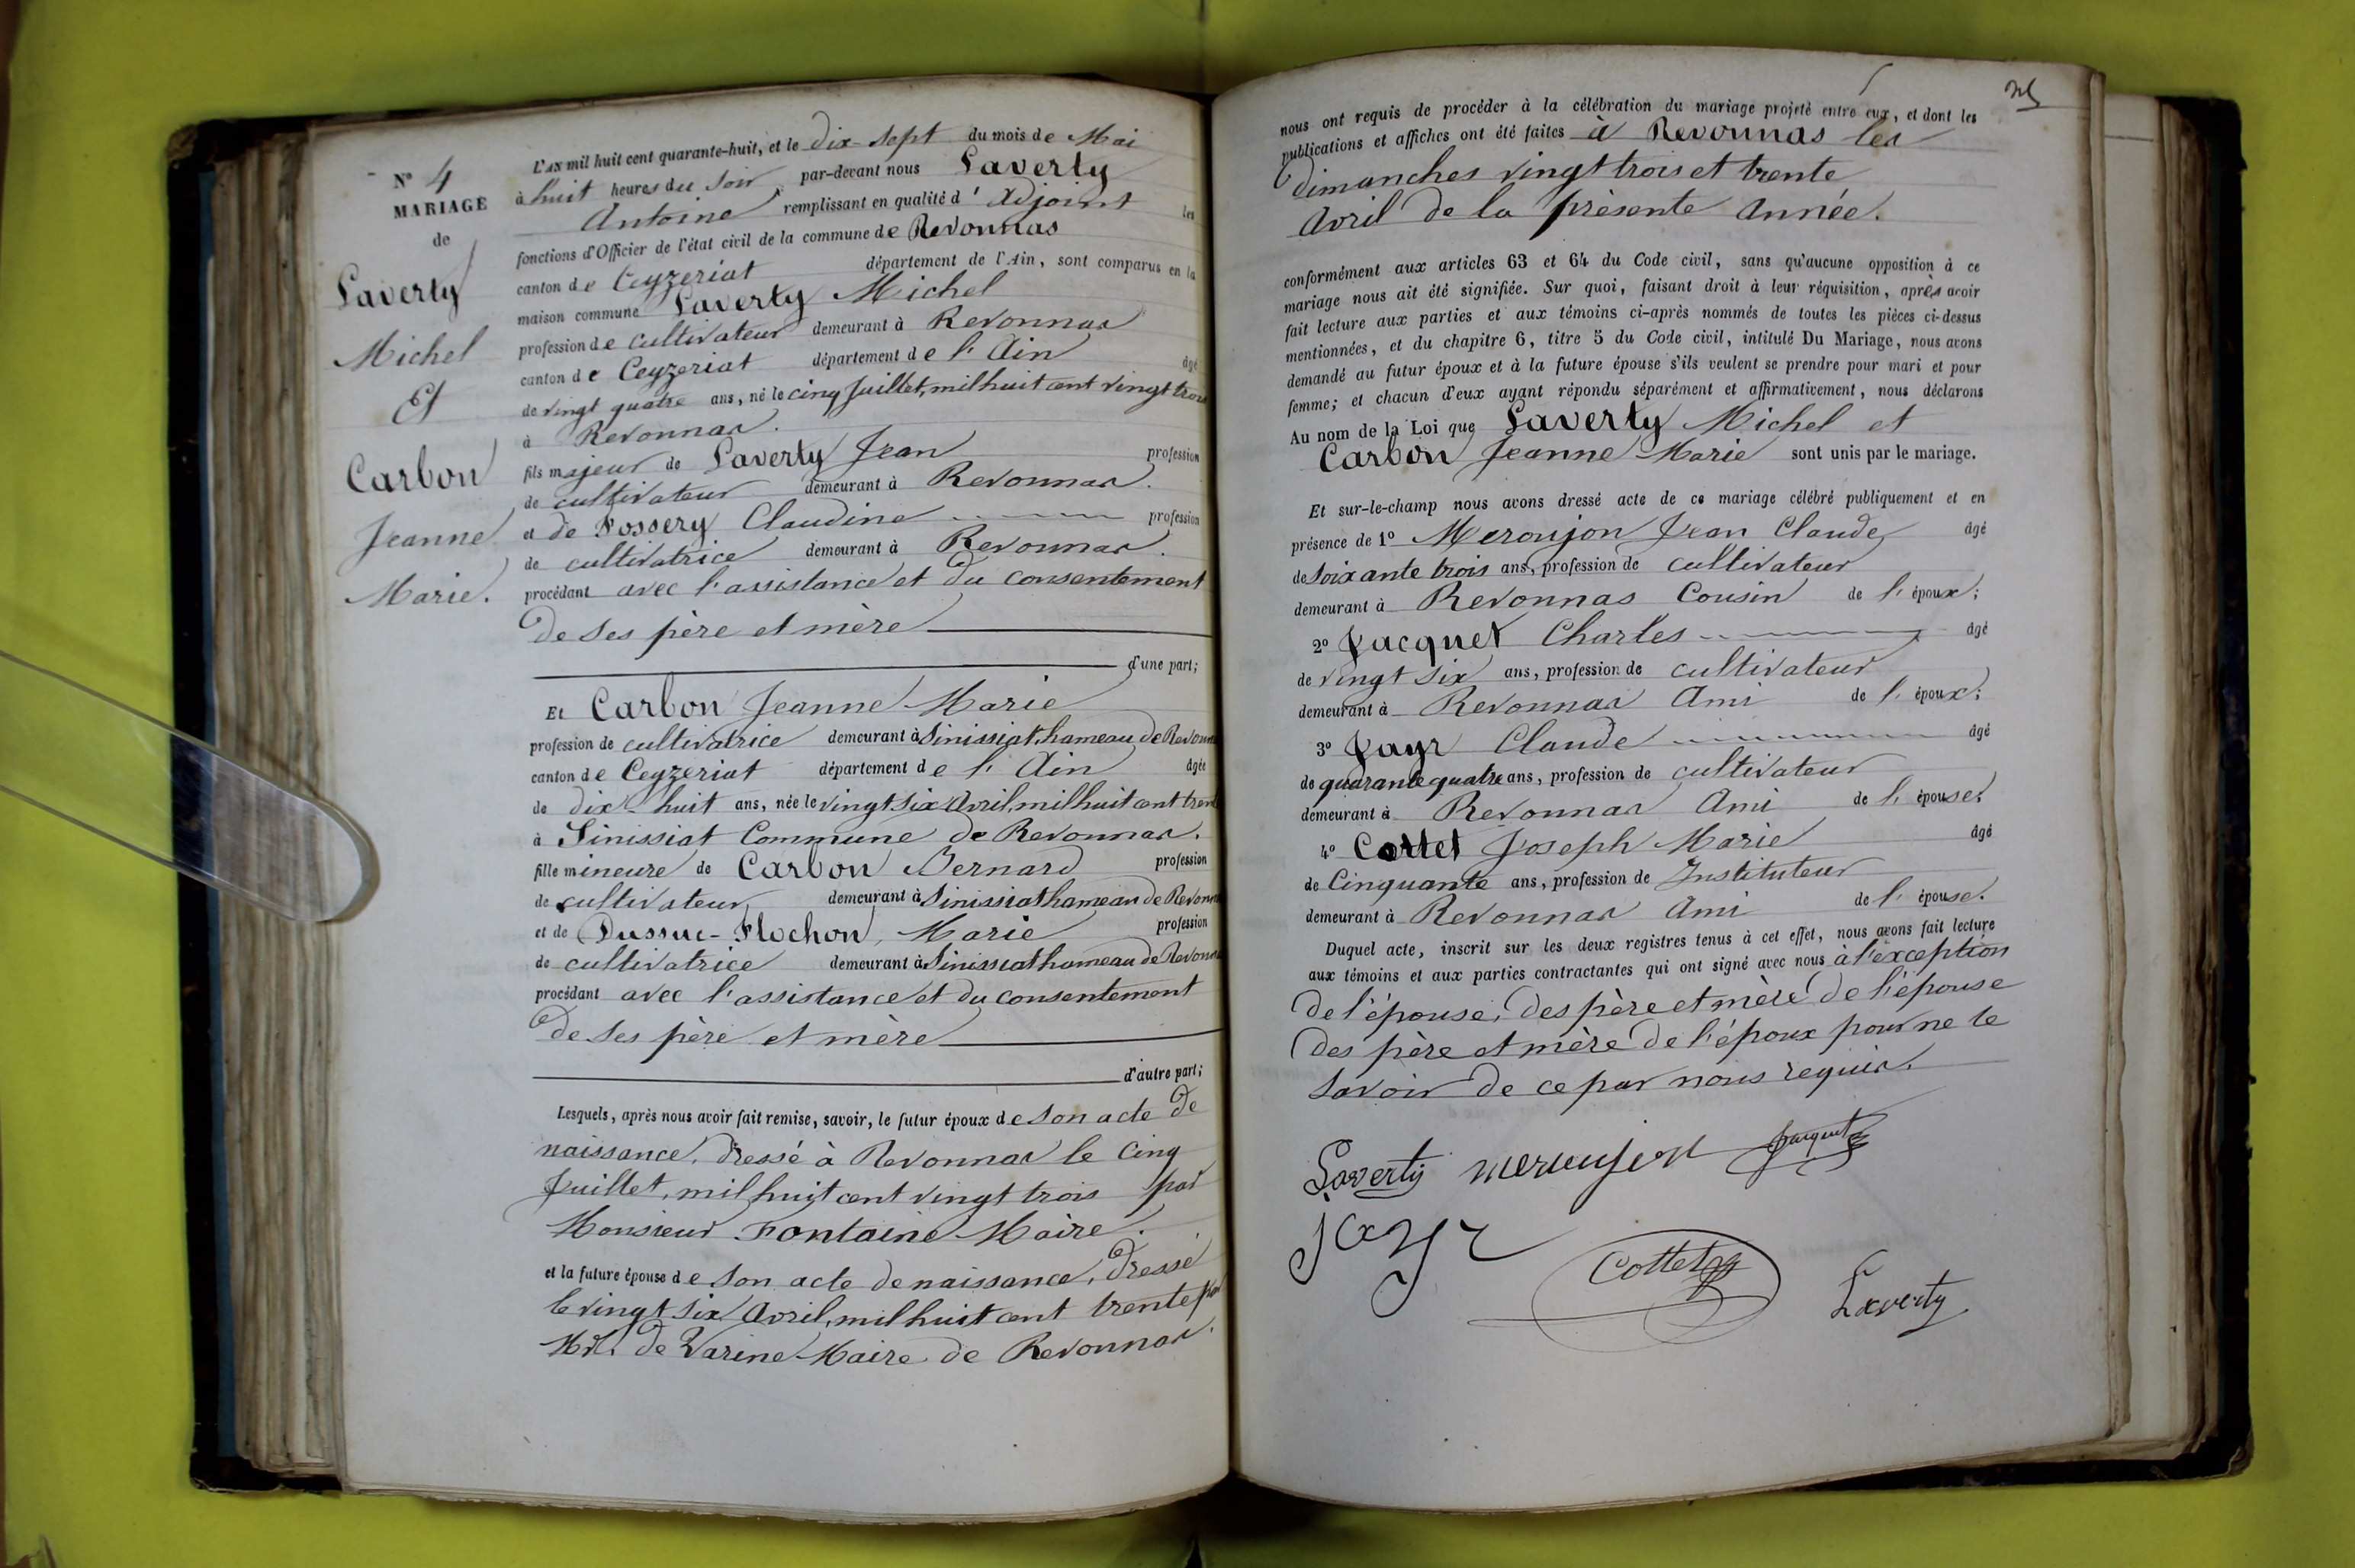 N° 4
MARIAGE
de
Laverty
Michel
Et
Carbon
Jeanne
Marie.
L'AN mil huit cent quarante-huit, et le dix-sept du mois de Mai
à huit heures du soir, par-devant nous Laverty
Antoine remplissant en qualité d'Adjoint les
fonctions d'Officier de l'état civil de la commune de Revonnas
canton de Ceyzeriat département de l'Ain, sont comparus en la
maison commune Laverty Michel
profession de cultivateur demeurant à Revonnas
canton de Ceyzeriat département de l'Ain âgé
de vingt quatre ans, né le cinq Juillet, mil huit cent vingt trois
à Revonnas.
fils majeur de Laverty Jean profession
de cultivateur demeurant à Revonnas.
et de Fossery Claudine profession
de cultivatrice demeurant à Revonnas.
procédant avec l'assistance et du consentement
de ses père et mère
d'une part;
Et Carbon Jeanne Marie
profession de cultivatrice demeurant à Sinissiat hameau de Revonnas
canton de Ceyzeriat département de l'Ain âgée
de dix-huit ans, née le vingt six Avril, mil huit cent trente
à Sinissiat Commune de Revonnas.
fille mineure de Carbon Bernard profession
de cultivateur, demeurant à Sinissiat hameau de Revonnas
et de Dussuc-Flochon, Marie profession
de cultivatrice demeurant à Sinissiat hameau de Revonnas
procédant avec l'assistance et du consentement
de ses père et mère
d'autre part;
Lesquels, après nous avoir fait remise, savoir, le futur époux de son acte de
naissance, dressé à Revonnas le cinq
Juillet, mil huit cent vingt trois par
Monsieur Fontaine Maire.
et la future épouse de son acte de naissance, dressé
le vingt six Avril, mil huit cent trente par
Mr. de Varine Maire de Revonnas.
nous ont requis de procéder à la célébration du mariage projeté entre eux, et dont les
publications et affiches ont été faites à Revonnas les
dimanches vingt trois et trente
Avril de la présente Année.
conformément aux articles 63 et 64 du Code civil, sans qu'aucune opposition à ce
mariage nous ait été signifiée. Sur quoi, faisant droit à leur réquisition, après avoir
fait lecture aux parties et aux témoins ci-après nommés de toutes les pièces ci-dessus
mentionnées, et du chapitre 6, titre 5 du Code civil, intitulé Du Mariage, nous avons
demandé au futur époux et à la future épouse s'ils veulent se prendre pour mari et pour
femme; et chacun d'eux ayant répondu séparément et affirmativement, nous déclarons
Au nom de la Loi que Laverty Michel et
Carbon Jeanne Marie sont unis par le mariage.
Et sur-le-champ nous avons dressé acte de ce mariage célébré publiquement et en
présence de 1° Meronjon Jean Claude âgé
de soixante trois ans, profession de cultivateur
demeurant à Revonnas Cousin de l'époux;
2° Jacquet Charles âgé
de vingt six ans, profession de cultivateur
demeurant à Revonnas Ami de l'époux;
3° Jayr Claude âgé
de quarante quatre ans, profession de cultivateur
demeurant à Revonnas Ami de l'épouse;
4° Cottet Joseph Marie âgé
de Cinquante ans, profession de Instituteur
demeurant à Revonnas Ami de l'épouse.
Duquel acte, inscrit sur les deux registres tenus à cet effet, nous avons fait lecture
aux témoins et aux parties contractantes qui ont signé avec nous à l'exception
de l'épouse, des père et mère de l'épouse
des père et mère de l'époux pour ne le
savoir de ce par nous requis.
Laverty meronjon Jacquet
Jayr
Cottet
Laverty